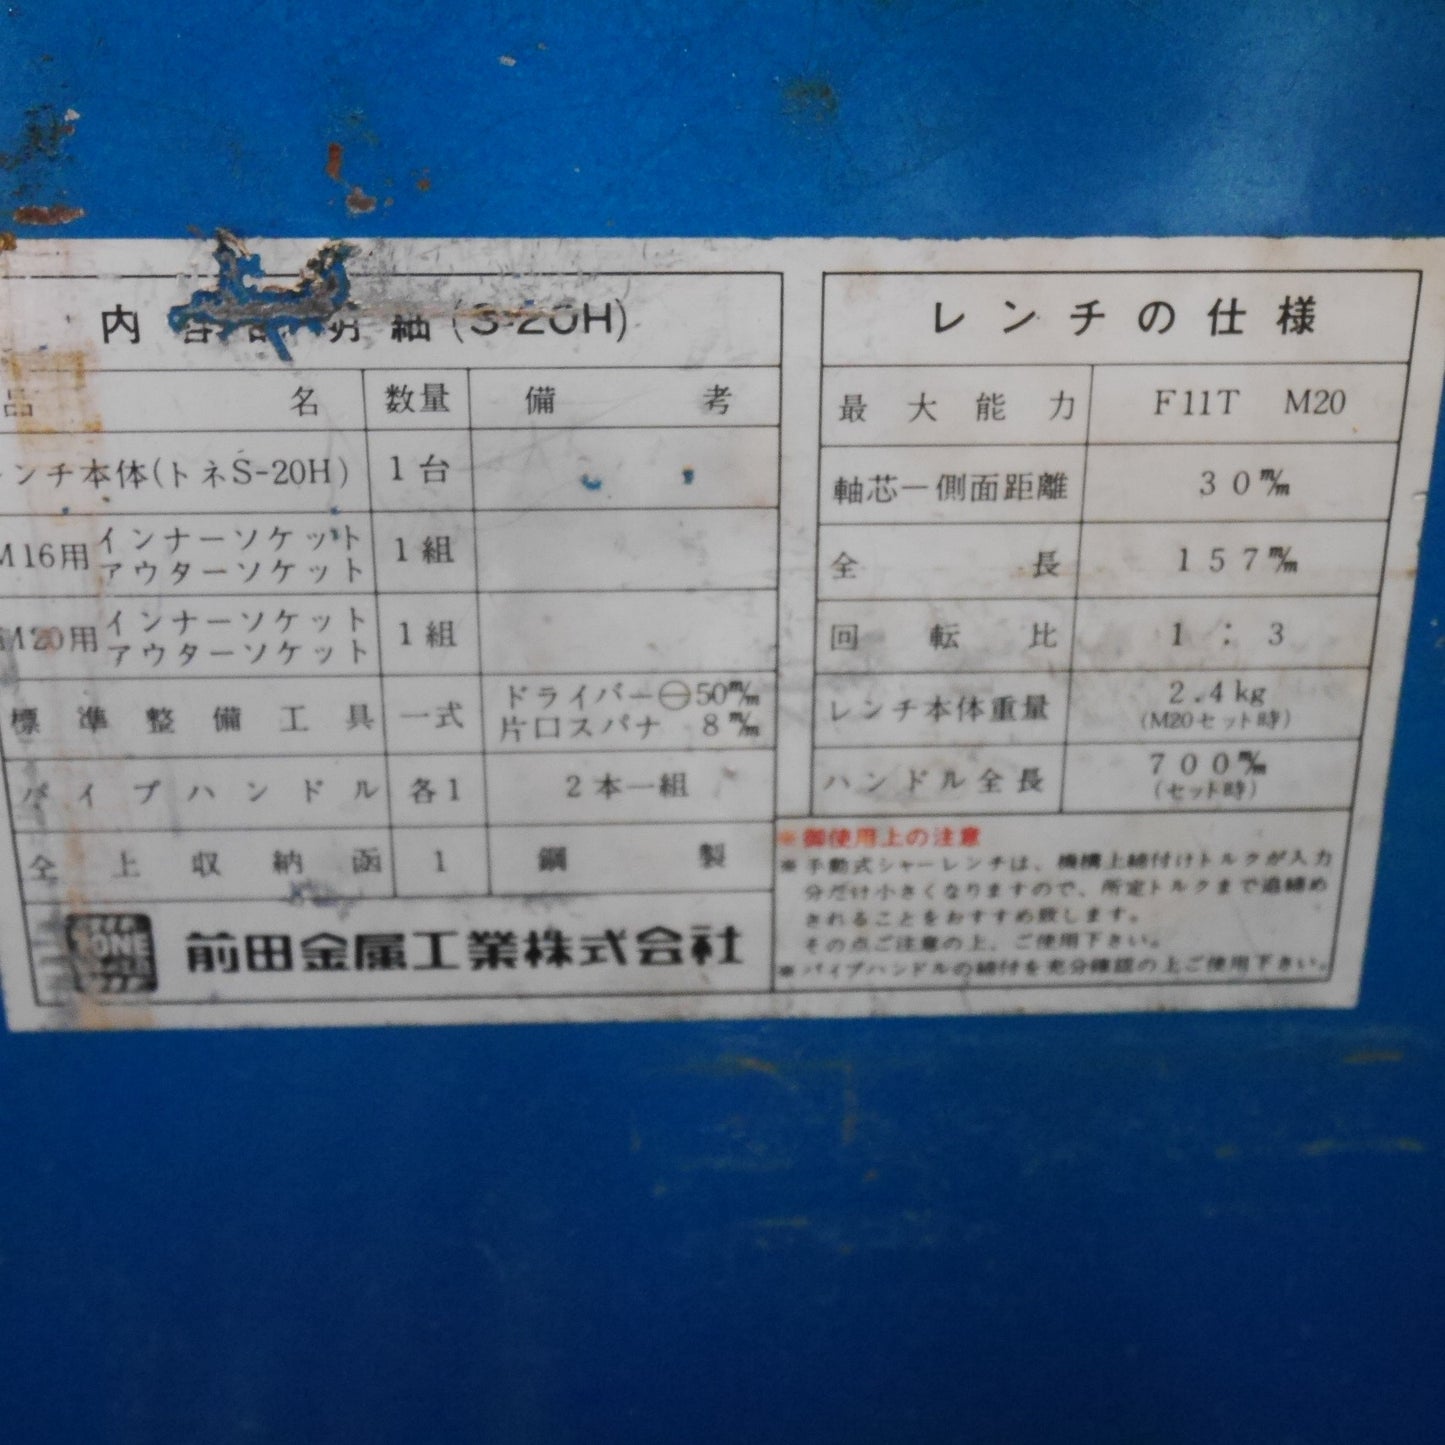 内容 明細(S-20H)
品名 数量 備考
ンチ本体(トネS-20H) 1台
M16用 インナーソケット
アウターソケット 1組
M20用 インナーソケット
アウターソケット 1組
標準整備工具 一式 ドライバー⊖50㎜
片口スパナ 8㎜
パイプハンドル 各1 2本一組
仝上収納函 1 鋼製
TONE
前田金属工業株式会社
レンチの仕様
最大能力 F11T M20
軸芯ー側面距離 30㎜
全長 157㎜
回転比 1:3
レンチ本体重量 2.4kg
(M20セット時)
ハンドル全長 700㎜
(セット時)
※御使用上の注意
※手動式シャーレンチは、機構上締付けトルクが入力
分だけ小さくなりますので、所定トルクまで追締め
されることをおすすめ致します。
その点ご注意の上、ご使用下さい。
※パイプハンドルの締付を充分確認の上ご使用下さい。